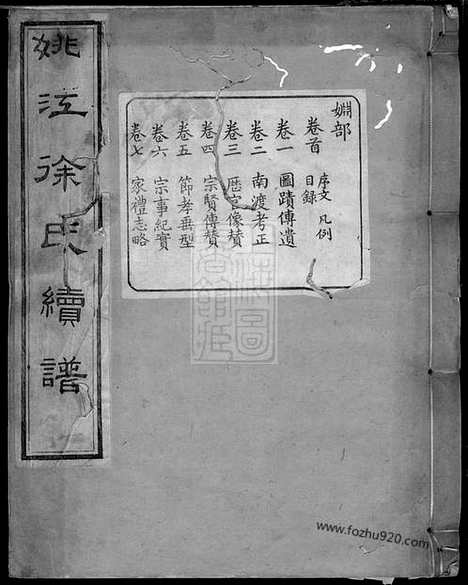 姚江徐氏續譜
婣部
卷首 序文 凡例 目录
卷一 圖蹟傳遺
卷二 南渡考正
卷三 歴官像賛
卷四 宗賢傳賛
卷五 節孝垂型
卷六 宗事紀實
卷七 家禮志略
www.fozhu920.com